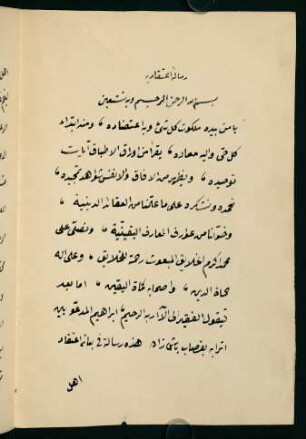 رسالة اعتقادية
بسم الله الرحمن الرحيم وبه نستعين
يا من بيده ملكوت كل شئ وبه اعتضاده ٭ ومنه ابتداء
كل حى واليه معاده ٭ يقرأ من اوراق الاطباق آيات
توحيده ٭ ويظهر من الافاق والانفس شواهد تمجيده ٭
نحمده ونشكره على ما علمنا من العقائد الدينية ٭
وخولنا من عوارف المعارف اليقينية ٭ ونصلى على
محمد اكرم الخلايق المبعوث رحمة للخلايق ٭ وعلى اله
حماة الدين ٭ واصحابه كماة اليقين ٭ اما بعد
فيقول الفقير الى الآء ربه الرحيم ابراهيم المدعو بين
اترابه بقصاب باشى زاده هذه رسالة فى بيان اعتقاد
اهل